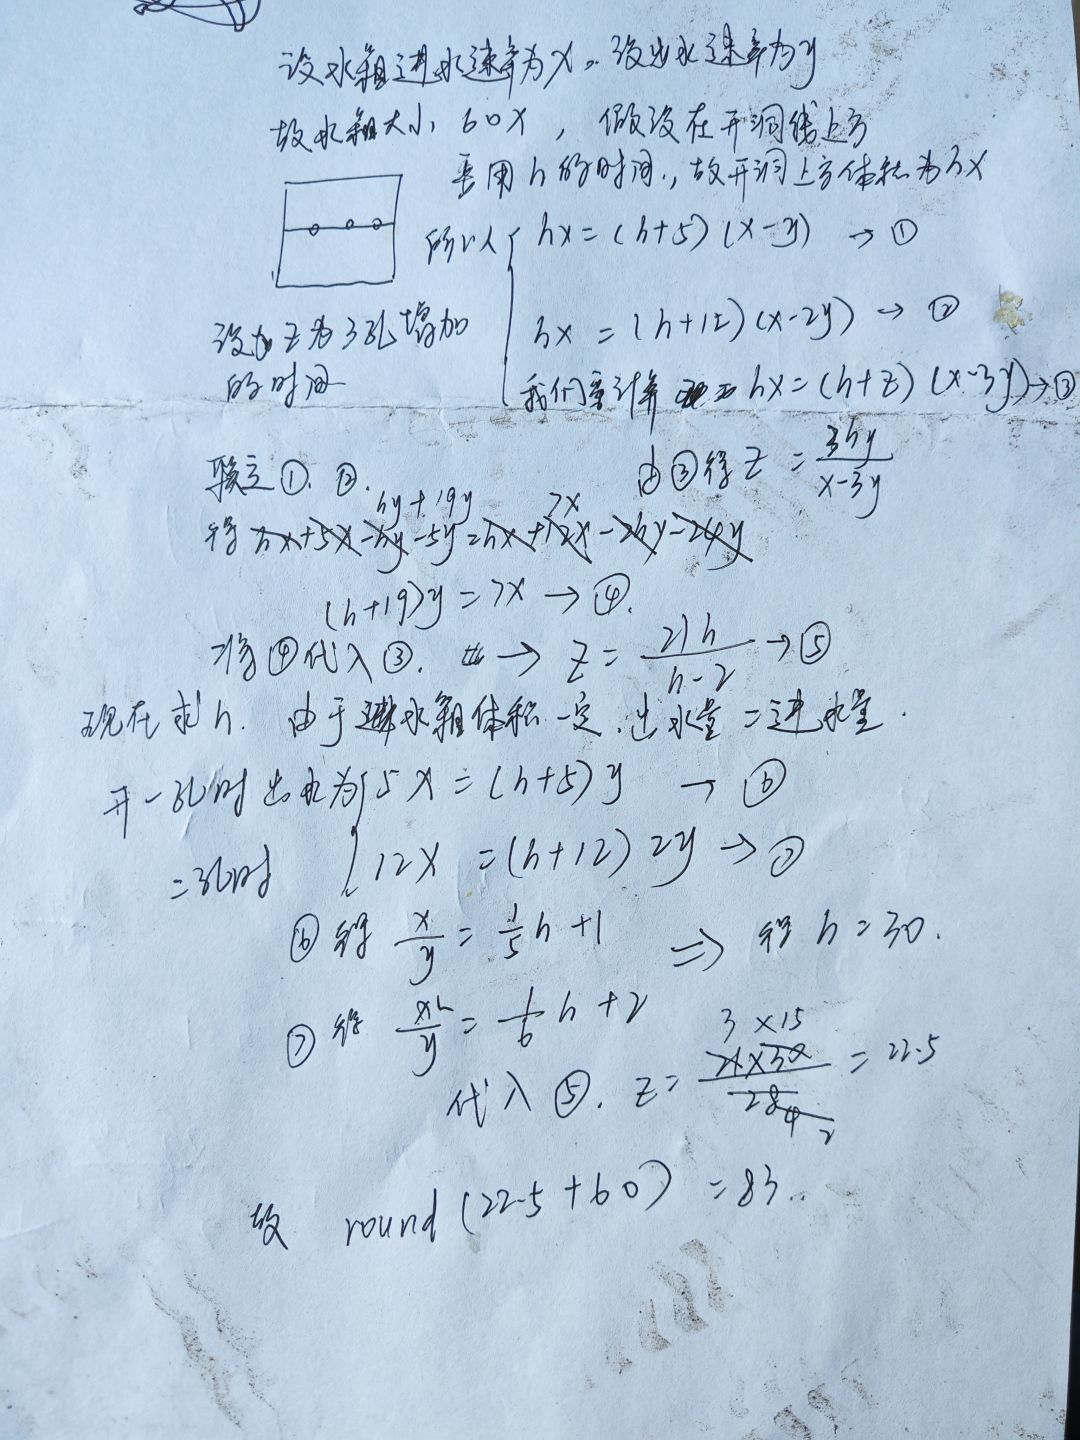 设水箱进水速率为x。设出水速率为y
故水箱大小60x，假设在开洞线上方
要用h的时间，故开洞上方体积为hx
所以 hx=(h+5)(x-y) → ①
hx=(h+12)(x-2y) → ②
设z为3孔增加
的时间
我们要计算 hx=(h+z)(x-3y) → ③
联立①、②.
由③得z = 3hy/(x-3y)
hy+19y 7x
得 hx+5x-hy-5y=hx+12x-2hy-24y
(h+19)y=7x → ④.
将④代入③. → z= 21h/(h-2) → ⑤
现在求h. 由于水箱体积一定.出水量=进水量.
开一孔时出水为 5x=(h+5)y → ⑥
二孔时 12x =(h+12)2y → ⑦
⑥得 x/y = 1/5 h+1
⇒ 得 h=30.
⑦得 x/y = 1/6 h+2
3×15
代入⑤. z= 21×30/28 = 22.5
4
2
故 round(22.5+60) =83..